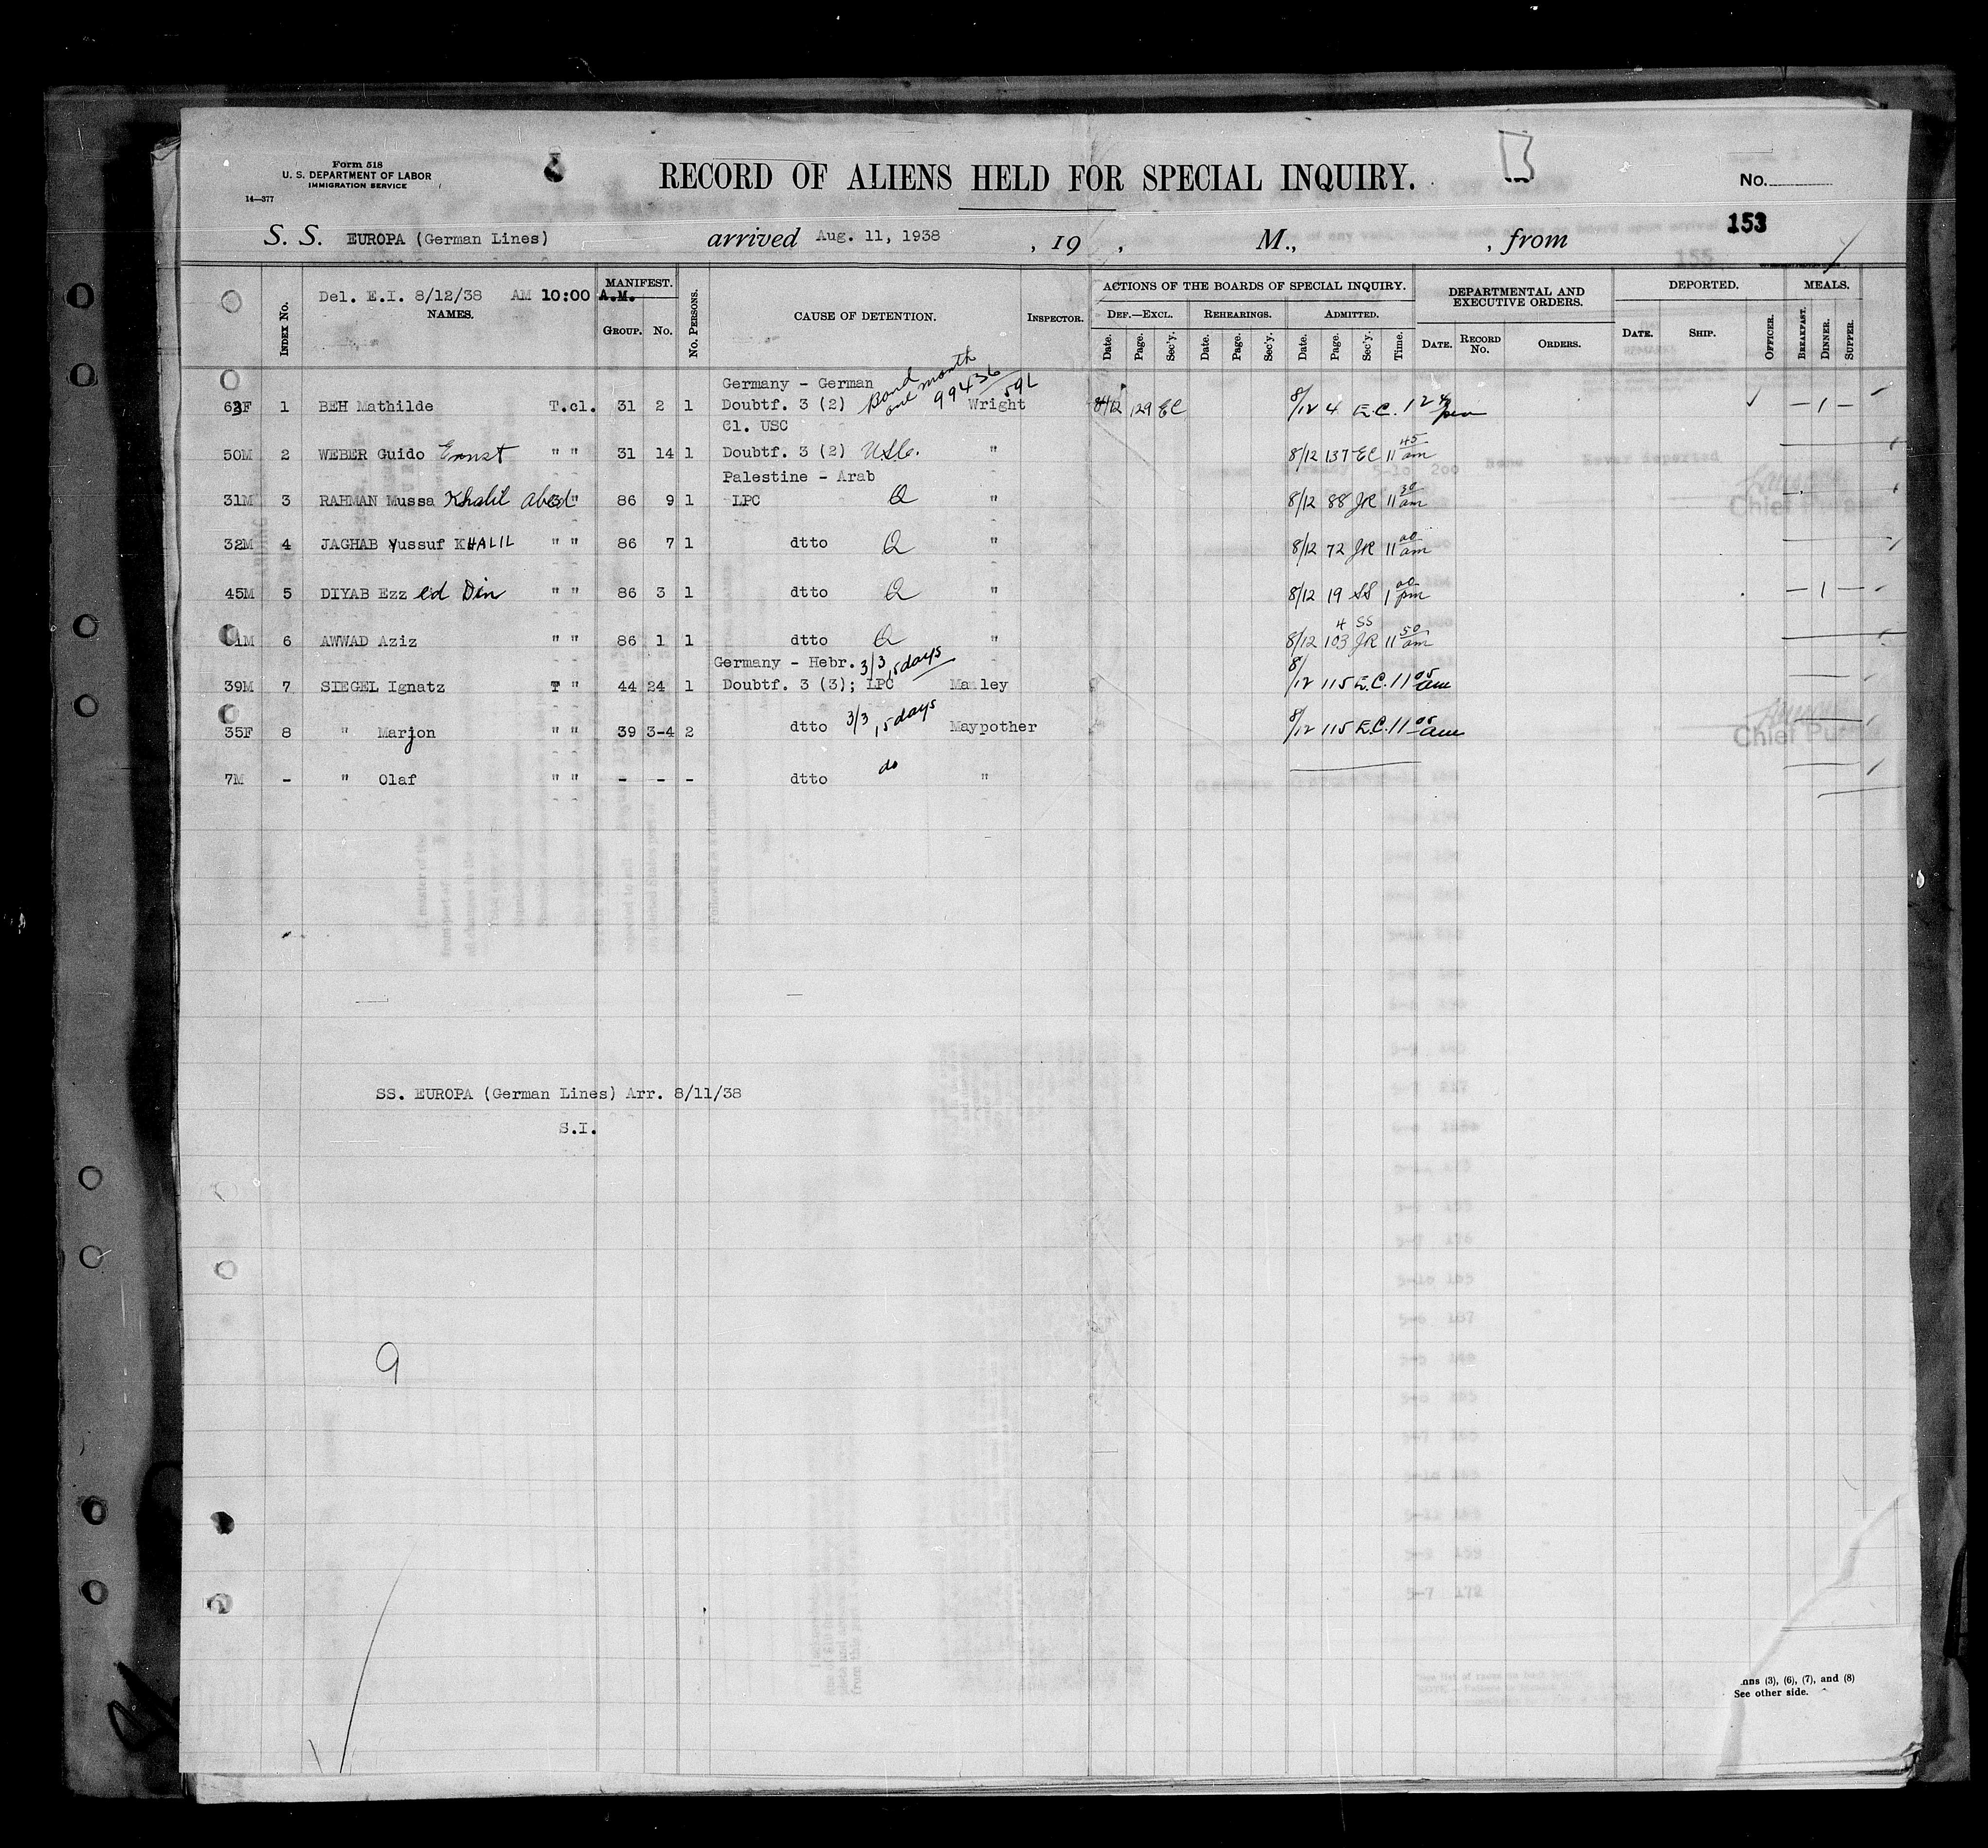 Form 518
U. S. DEPARTMENT OF LABOR
IMMIGRATION SERVICE
14—377
RECORD OF ALIENS HELD FOR SPECIAL INQUIRY.
No.
153
S. S. EUROPA (German Lines) arrived Aug. 11, 1938 , 19 , M., , from
Del. E.I. 8/12/38 AM 10:00 A.M.
INDEX NO. NAMES. MANIFEST. GROUP. NO. NO. PERSONS. CAUSE OF DETENTION. INSPECTOR. ACTIONS OF THE BOARDS OF SPECIAL INQUIRY. DEPARTMENTAL AND EXECUTIVE ORDERS. DEPORTED. MEALS.
DEF.—EXCL. REHEARINGS. ADMITTED.
Date. Page. Sec'y. Date. Page. Sec'y. Date. Page. Sec'y. Time. DATE. RECORD No. ORDERS. DATE. SHIP. OFFICER. BREAKFAST. DINNER. SUPPER.
Germany - German Bond one month 99436/591
63F 1 BEH Mathilde T.cl. 31 2 1 Doubtf. 3 (2) Wright 8/12 129 EC 8/12 4 E.C.
Cl. USC
50M 2 WEBER Guido Ernst " " 31 14 1 Doubtf. 3 (2) USC. " 8/12 137 EC 11 45 am
Palestine - Arab
31M 3 RAHMAN Mussa Khalil abed 3 " 86 9 1 LPC Q " 8/12 88 JR 11 30 am
32M 4 JAGHAB Yussuf KHALIL " " 86 7 1 dtto Q " 8/12 72 JR 11 00 am
45M 5 DIYAB Ezz ed Din " " 86 3 1 dtto Q " 8/12 19 SS 1 00 pm
4 SS
1M 6 AWWAD Aziz " " 86 1 1 dtto Q " 8/12 103 JR 11 50 am
Germany - Hebr. 3/3, 5 days
39M 7 SIEGEL Ignatz T " 44 24 1 Doubtf. 3 (3); LPC Manley 8/12 115 E.C. 11 05 am
35F 8 " Marjon " " 39 3-4 2 dtto 3/3, 5 days Maypother 8/12 115 E.C. 11 05 am
7M - " Olaf " " - - - dtto do "
SS. EUROPA (German Lines) Arr. 8/11/38
S.I.
9
(3), (6), (7), and (8)
See other side.